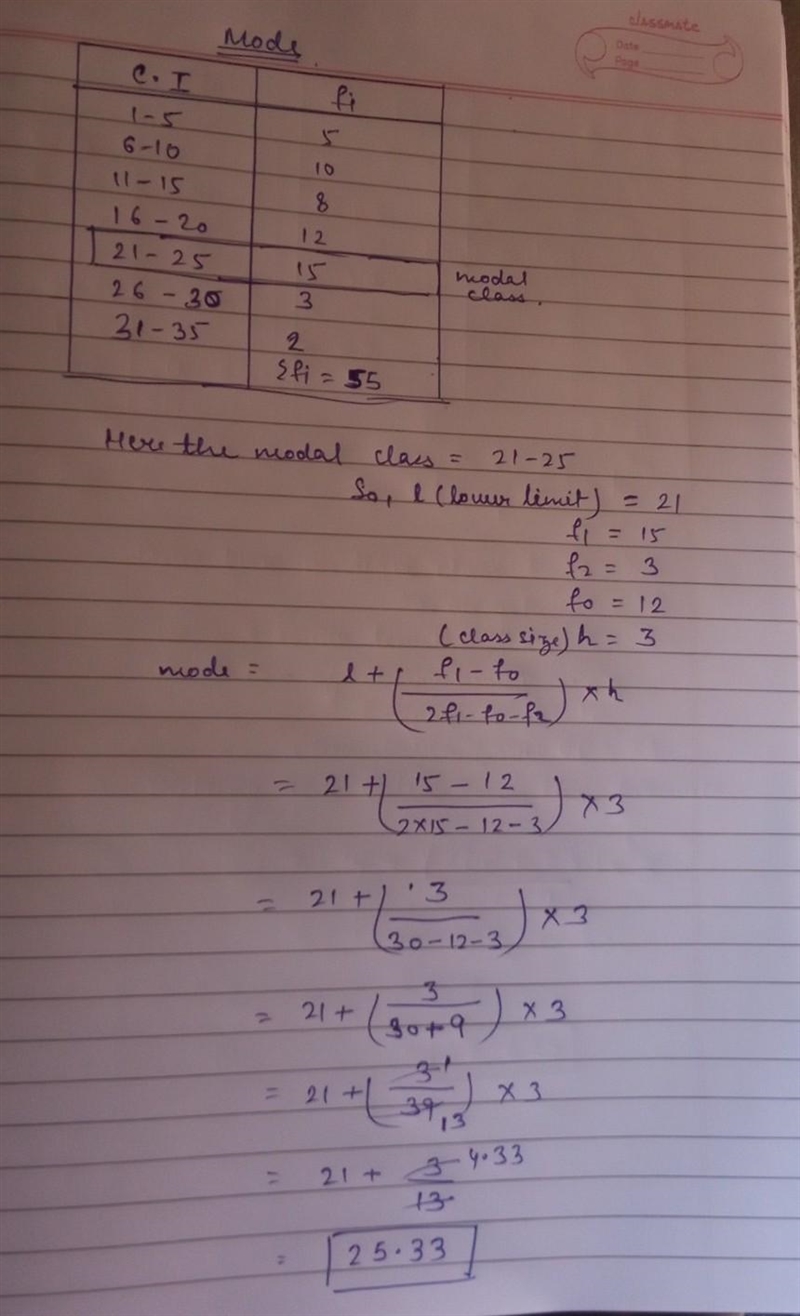 classmate
Date
Page
Mode
C.I fi
1-5 5
6-10 10
11-15 8
16-20 12
21-25 15 modal class.
26-30 3
31-35 2
Σfi = 55
Here the modal class = 21-25
So, l (lower limit) = 21
f1 = 15
f2 = 3
f0 = 12
(class size) h = 3
mode = l + (f1-f0 / 2f1-f0-f2) × h
= 21 + (15-12 / 2×15-12-3) × 3
= 21 + (3 / 30-12-3) × 3
= 21 + (3 / 30+9) × 3
= 21 + (3 1 / 39 13) × 3
= 21 + 3 / 13 4.33
= 25.33